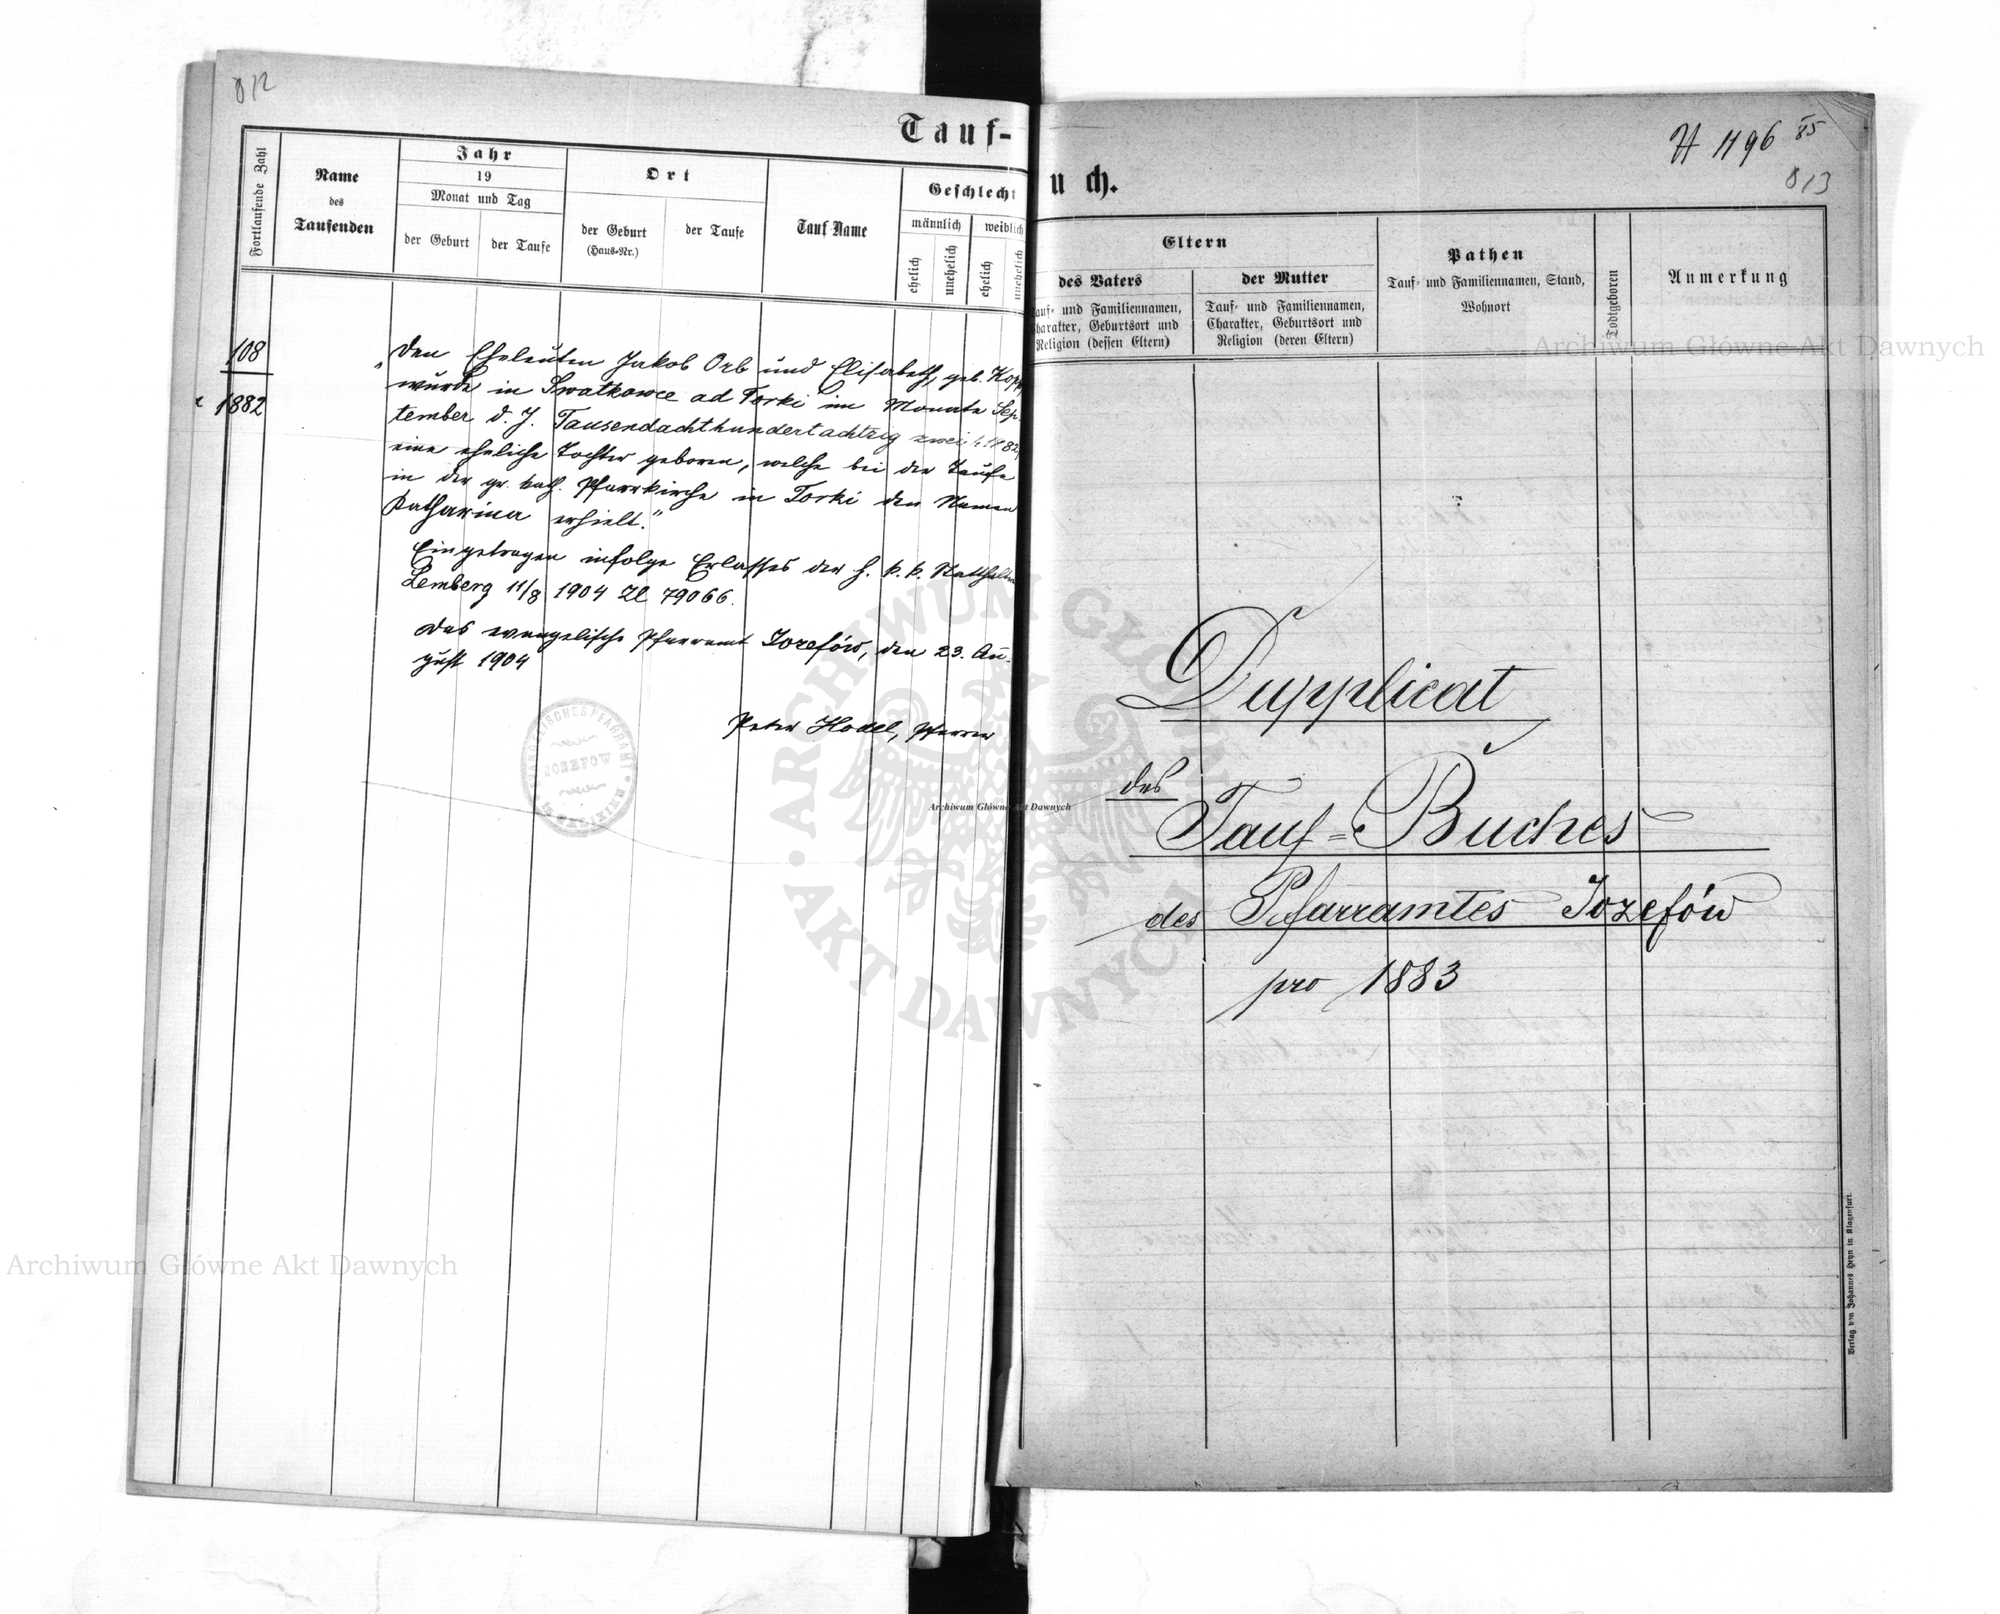 812
Tauf-
Fortlaufende Zahl
Name
des
Taufenden
Jahr
19
Monat und Tag
der Geburt
der Taufe
Ort
der Geburt
(Haus-Nr.)
der Taufe
Tauf-Name
Geschlecht
männlich
weiblich
ehelich
unehelich
ehelich
unehelich
108
1882
"Den Eheleuten Jakob Orb und Elisabeth, geb. Kopp
wurde in Swatkowce ad Torki im Monate Sep-
tember d. J. Tausendachthundertachtzig zwei /: 1882
eine eheliche Tochter geboren, welche bei der Taufe
in der gr. kath. Pfarrkirche in Torki den Namen
Katharina erhielt."
Eingetragen infolge Erlasses der h. k. k. Statthalterei
Lemberg 11/8 1904 Zl 79066.
Das evangelische Pfarramt Jozefów, den 23. Au-
gust 1904
Peter Hodel, Pfarrer
EVANGELISCHES PFARRAMT
JOZEFÓW
in GALIZIEN
H 1196 85
813
uch.
Eltern
des Vaters
Tauf- und Familiennamen,
Charakter, Geburtsort und
Religion (dessen Eltern)
der Mutter
Tauf- und Familiennamen,
Charakter, Geburtsort und
Religion (deren Eltern)
Pathen
Tauf- und Familiennamen, Stand,
Wohnort
Todtgeboren
Anmerkung
Dupplicat
des
Tauf-Buches
des Pfarramtes Jozefów
pro 1883
Verlag von Johannes Heyn in Klagenfurt.
Archiwum Główne Akt Dawnych
Archiwum Główne Akt Dawnych
Archiwum Główne Akt Dawnych
ARCHIWUM GŁÓWNE
AKT DAWNYCH